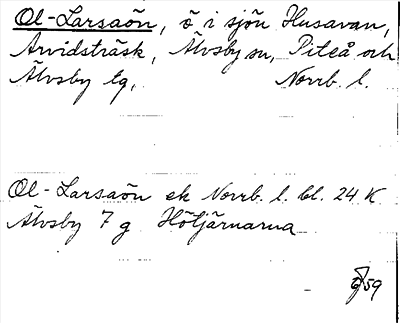 Ol-Larsaön, ö i sjön Husavan,
Arvidsträsk, Älvsby sn, Piteå och
Älvsby tg, Norrb. l.
Ol-Larsaön ek Norrb. l. bl. 24 K
Älvsby 7 g Höljärnarna
59